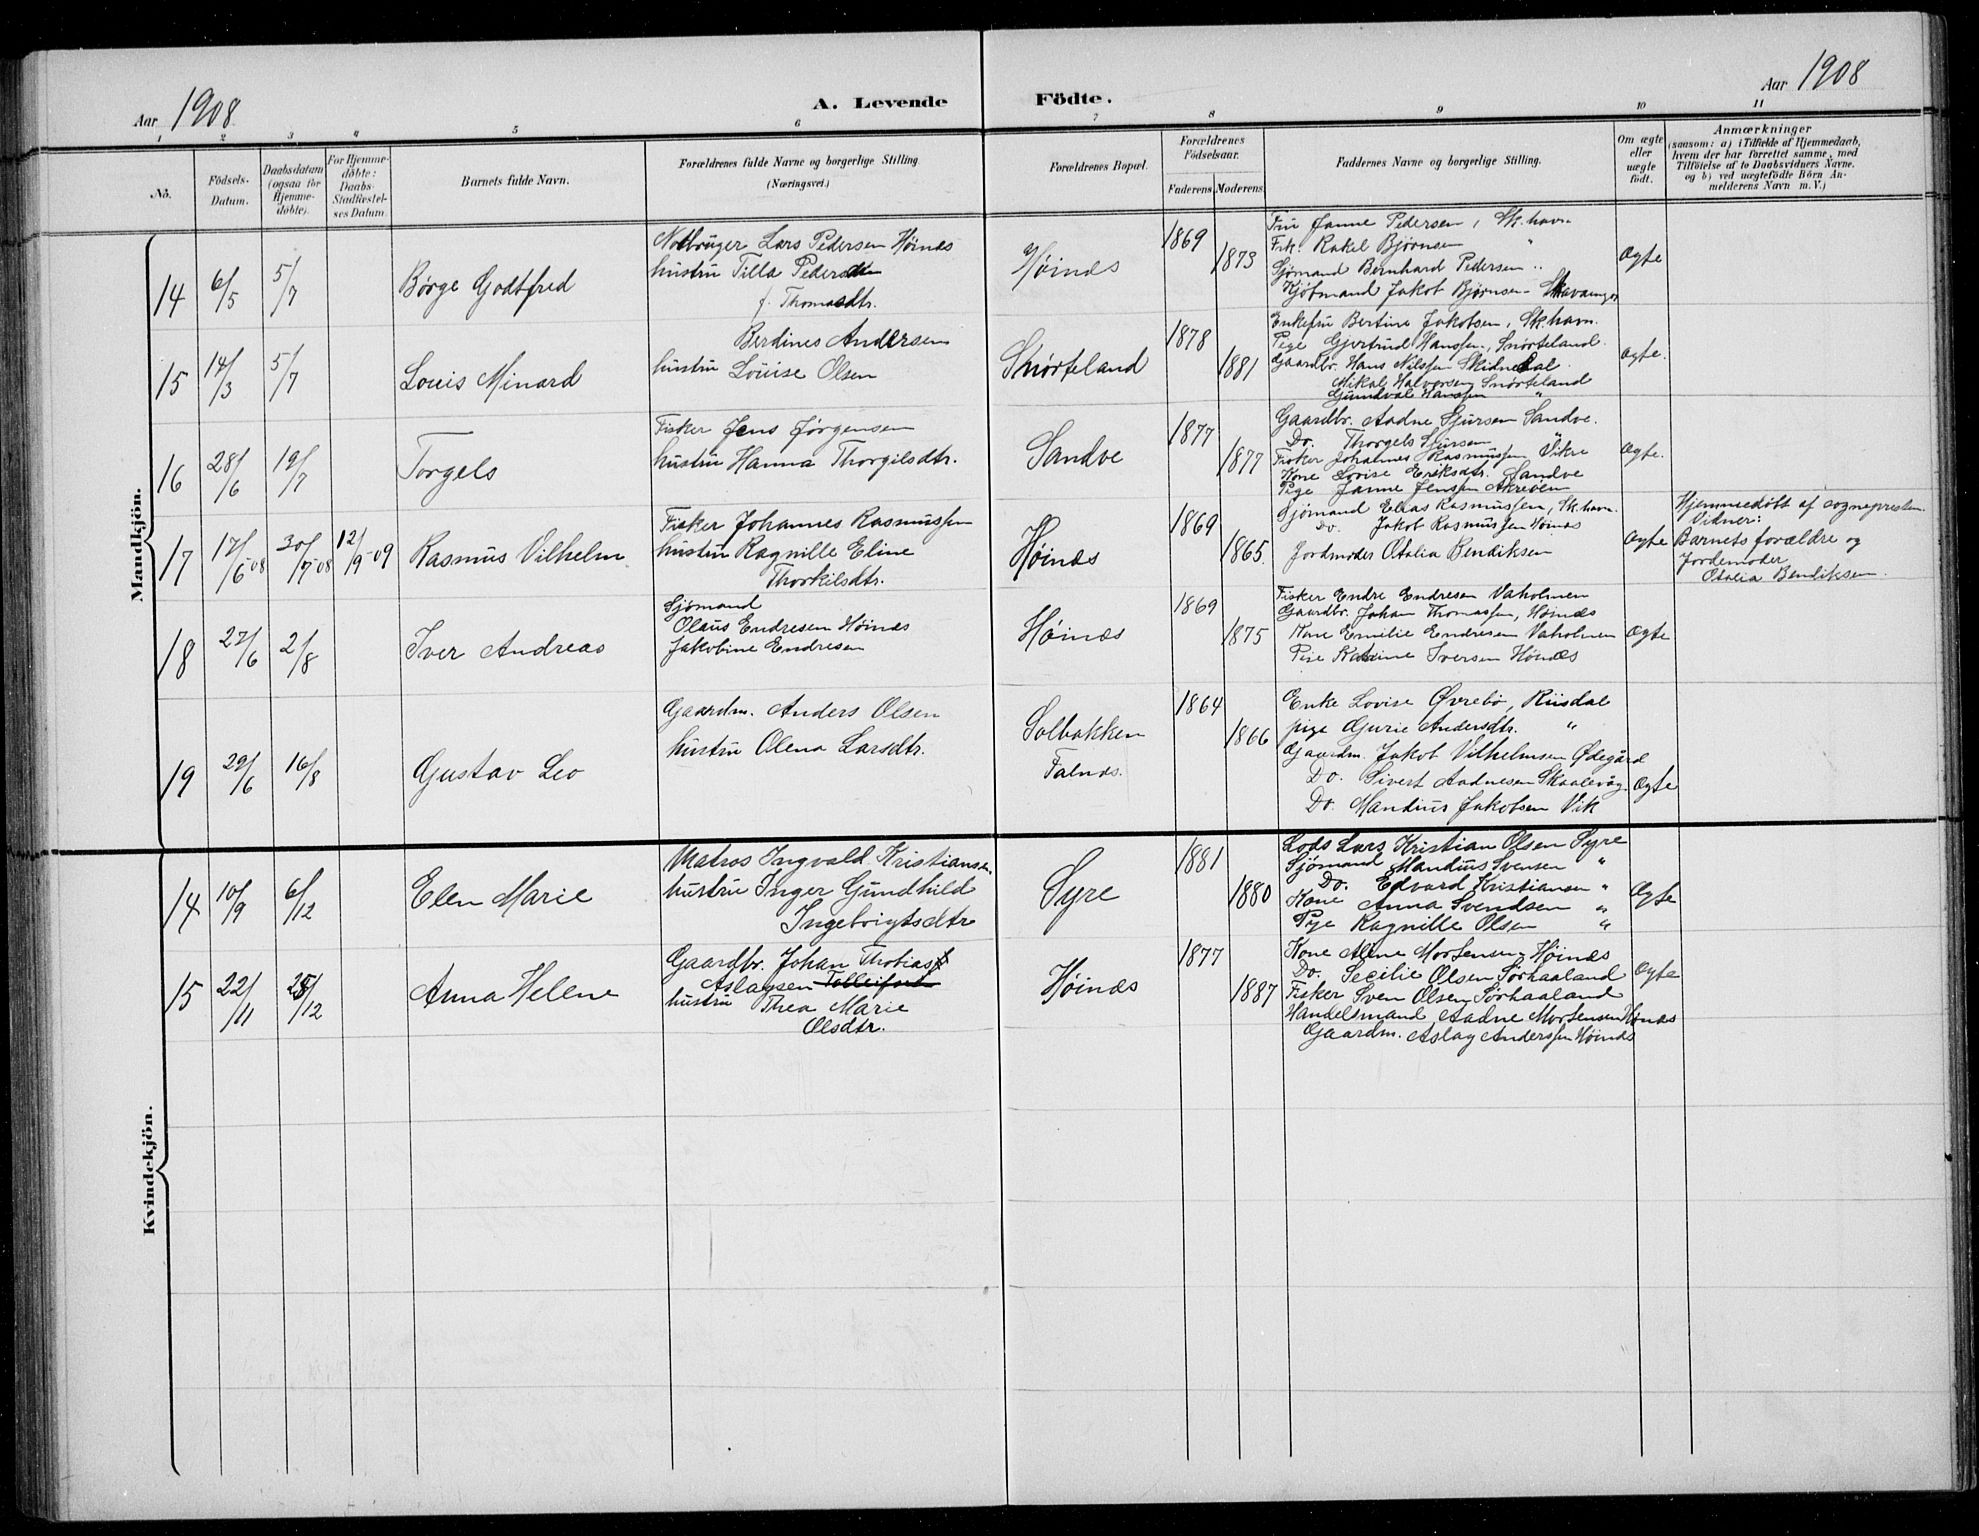 Aar 1908
A. Levende
Födte.
Aar 1908
1 2 3 4 5 6 7 8 9 10 11
No.
Födsels-Datum.
Daabsdatum (ogsaa for Hjemmedöbte).
For Hjemmedöbte: Daabs-Stadfæstelses Datum.
Barnets fulde Navn.
Forældrenes fulde Navne og borgerlige Stilling.
(Næringsvei.)
Forældrenes Bopæl.
Forældrenes Födselsaar.
Faderens Moderens
Faddernes Navne og borgerlige Stilling.
Om ægte eller uægte födt.
Anmærkninger
(saasom: a) i Tilfælde af Hjemmedaab,
hvem der har forrettet samme, med
Tilföielse af to Daabsvidners Navne.
og b) ved uægtefödte Börn An-
melderens Navn m. V.)
Mandkjön.
14 6/5 5/7 Børge Godtfred
Notbruger Lars Pedersen Høinæs
hustru Tilla Pedersen
f. Thomasdtr.
Høinæs
1869
1873
Fru Janne Pedersen, Sk.havn
Frk. Rakel Bjørnsen "
Sjømand Bernhard Pedersen "
Kjøbmand Jakob Bjørnsen - Stavanger
Ægte
15 14/3 5/7 Louis Minard
Berdines Andersen
hustru Louise Olsen
Snørteland
1878
1881
Enkefru Bertine Jakobsen, Sk.havn.
Pige Gjertrud Hanssen, Snørteland.
Gaardbr. Hans Nilssen Skidnedal.
Mikal Halvorsen Snørteland
Gundval Hanssen "
Ægte.
16 28/6 19/7 Torgels
Fisker Jens Jørgensen
hustru Hanna Thorgilsdtr.
Sandve
1877
1877
Gaardbr. Aadne Sjursen Sandve.
Do. Thorgels Sjursen "
Fisker Johannes Rasmussen Vikre
Kone Lovise Eriksdtr. Sandve
Pige Janne Jenssen Akrehen
Ægte.
17 17/6-08 30/7-08 12/9-09 Rasmus Vilhelm
Fisker Johannes Rasmussen
hustru Ragnille Eline
Thorkilsdtr.
Høinæs
1869
1865.
Sjømand Elias Rasmussen, Sk.havn.
Do. Jakob Rasmussen Høinæs
Jordmoder Otalia Bendiksen
Ægte
Hjemmedøbt af sognepresten
Vidner:
Barnets forældre og
Jordemoder
Otalia Bendiksen.
18 27/6 2/8 Iver Andreas
Sjømand
Olaus Endresen Høinæs
Jakobine Endresen
Høinæs
1869
1875
Fisker Endre Endresen Vaholmen
Gaardbr. Johan Thomassen, Høinæs
Kone Emilie Endresen Vaholmen
Pige Katrine Iversen Høinæs
Ægte
19 29/6 16/8 Gustav Leo
Gaardm. Anders Olsen
hustru Olena Larsdtr.
Solbakken
Falnæs.
1864
1866
Enke Lovise Øvrebø, Riisdal
pige Gurie Andersdtr. "
Gaardm. Jakob Vilhelmsen Ødegård
Do. Sivert Aadnesen Skaalevåg
Do. Mandius Jakobsen Vik
Ægte
Kvindekjön.
14 10/9 6/12 Elen Marie
Matros Ingvald Kristiansen
hustru Inger Gundhild
Ingebrigtsdtr
Syre
1881
1880
Lods Lars Kristian Olsen Syre
Sjømand Mandius Svensen "
Do. Edvard Kristiansen "
Kone Anna Svendsen "
Pige Ragnille Olsen "
Ægte
15 22/11 25/12 Anna Helene
Gaardbr. Johan Thobias
Aslagsen
hustru Thea Marie
Olsdtr.
Høinæs
1877
1887
Kone Aline Mortensen, Høinæs
Do. Secilie Olsen Sørhaaland
Fisker Sven Olsen Sørhaaland
Handelsmand Aadne Mortensen Høinæs
Gaardm. Aslag Anderssen Høinæs
Ægte